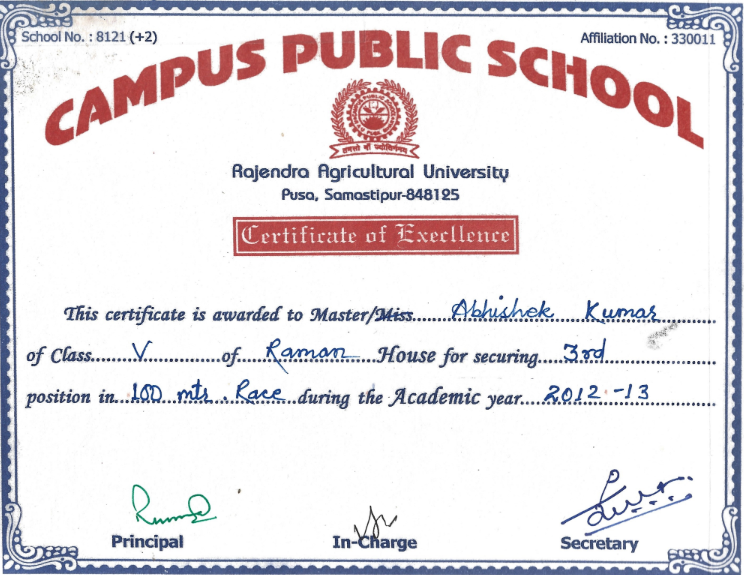 School No. : 8121 (+2)
Affiliation No. : 330011
CAMPUS PUBLIC SCHOOL
तमसो मा ज्योतिर्गमय
Rajendra Agricultural University
Pusa, Samastipur-848125
Certificate of Execllence
This certificate is awarded to Master/Miss....... Abhishek Kumar
of Class....... V ..........of.... Raman ....House for securing.... 3rd
position in... 100 mts. Race ...during the Academic year.... 2012-13
Principal
In-Charge
Secretary